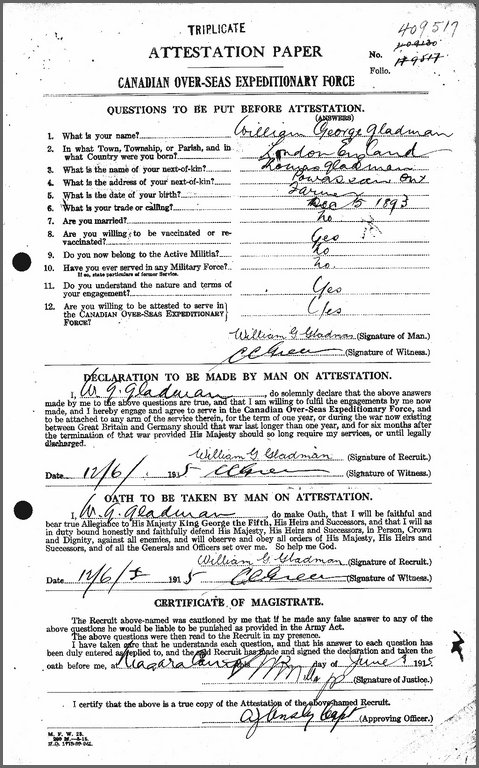 TRIPLICATE
409517
ATTESTATION PAPER
No. 409130
Folio. 179517
CANADIAN OVER-SEAS EXPEDITIONARY FORCE
QUESTIONS TO BE PUT BEFORE ATTESTATION.
(ANSWERS)
1. What is your name? William George Gladman
2. In what Town, Township, or Parish, and in what Country were you born? London England
3. What is the name of your next-of-kin? Thomas Gladman
4. What is the address of your next-of-kin? Powassan Ont
5. What is the date of your birth? Farmer
6. What is your trade or calling? Dec 5 1893
7. Are you married? no
8. Are you willing to be vaccinated or re-vaccinated? Yes
9. Do you now belong to the Active Militia? no
10. Have you ever served in any Military Force? no
If so, state particulars of former Service.
11. Do you understand the nature and terms of your engagement? Yes
12. Are you willing to be attested to serve in the CANADIAN OVER-SEAS EXPEDITIONARY FORCE? Yes
William G Gladman (Signature of Man.)
CC Green (Signature of Witness.)
DECLARATION TO BE MADE BY MAN ON ATTESTATION.
I, W. G. Gladman, do solemnly declare that the above answers
made by me to the above questions are true, and that I am willing to fulfil the engagements by me now
made, and I hereby engage and agree to serve in the Canadian Over-Seas Expeditionary Force, and
to be attached to any arm of the service therein, for the term of one year, or during the war now existing
between Great Britain and Germany should that war last longer than one year, and for six months after
the termination of that war provided His Majesty should so long require my services, or until legally
discharged.
William G Gladman (Signature of Recruit.)
Date 12/6/ 1915 CC Green (Signature of Witness.)
OATH TO BE TAKEN BY MAN ON ATTESTATION.
I, W. G. Gladman, do make Oath, that I will be faithful and
bear true Allegiance to His Majesty King George the Fifth, His Heirs and Successors, and that I will as
in duty bound honestly and faithfully defend His Majesty, His Heirs and Successors, in Person, Crown
and Dignity, against all enemies, and will observe and obey all orders of His Majesty, His Heirs and
Successors, and of all the Generals and Officers set over me. So help me God.
William G Gladman (Signature of Recruit.)
Date 12/6/ 1915 CC Green (Signature of Witness.)
CERTIFICATE OF MAGISTRATE.
The Recruit above-named was cautioned by me that if he made any false answer to any of the
above questions he would be liable to be punished as provided in the Army Act.
The above questions were then read to the Recruit in my presence.
I have taken care that he understands each question, and that his answer to each question has
been duly entered as replied to, and the said Recruit has made and signed the declaration and taken the
oath before me, at Niagara Camp day of June 1915
Mills JP (Signature of Justice.)
I certify that the above is a true copy of the Attestation of the above-named Recruit.
Capt (Approving Officer.)
M. F. W. 23.